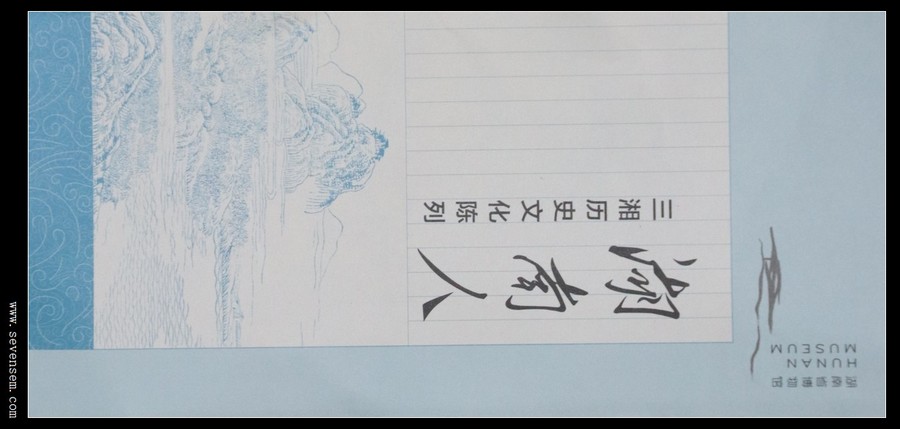 湖南省博物馆
HUNAN
MUSEUM
湖南人
三湘历史文化陈列
www.sevensem.com